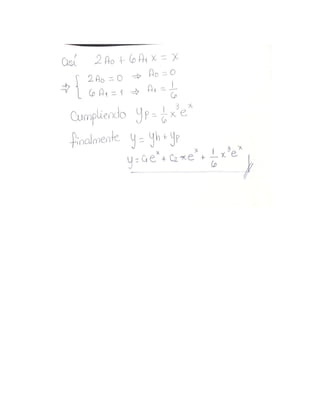 así 2A₀ + 6A₁x = x
⇒ { 2A₀ = 0 ⇒ A₀ = 0
6A₁ = 1 ⇒ A₁ = 1/6
Cumpliendo yp = 1/6 x³eˣ
finalmente y = yh + yp
y = c₁eˣ + c₂xeˣ + 1/6 x³eˣ